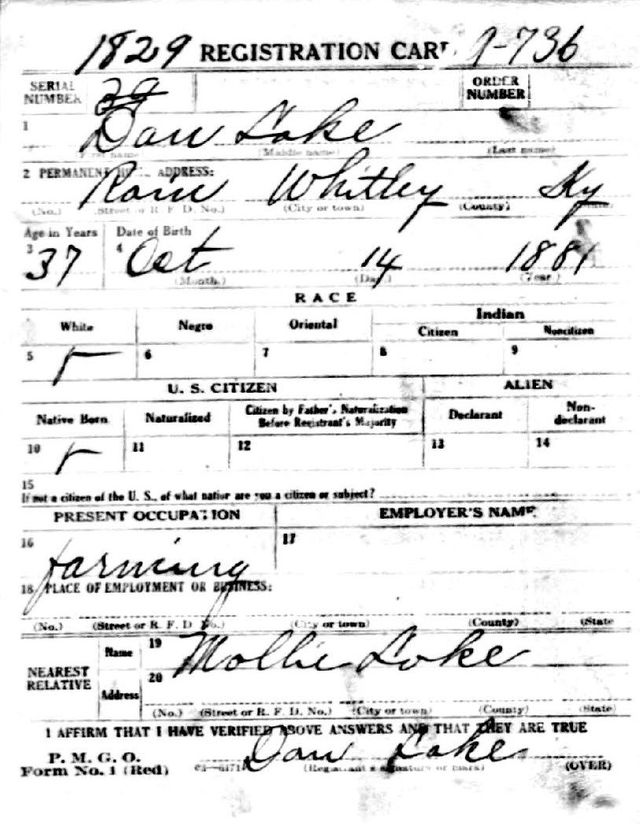 1829 REGISTRATION CARD 1-736
SERIAL NUMBER 39 ORDER NUMBER
1 Dan Loke
First name (Middle name) (Last name)
2 PERMANENT HOME ADDRESS:
Whitley Ky
(No.) (Street or R. F. D. No.) (City or town) (County) State
Age in Years Date of Birth
3 37 4 Oct 14 1881
(Month.) (Day.) (Year.)
RACE
White Negro Oriental Indian
Citizen Noncitizen
5 6 7 8 9
U. S. CITIZEN ALIEN
Native Born Naturalized Citizen by Father's Naturalization Before Registrant's Majority Declarant Non-declarant
10 11 12 13 14
15
If not a citizen of the U. S., of what nation are you a citizen or subject?
PRESENT OCCUPATION EMPLOYER'S NAME
16 farming 17
18 PLACE OF EMPLOYMENT OR BUSINESS:
(No.) (Street or R. F. D. No.) (City or town) (County) (State
NEAREST RELATIVE Name 19 Mollie Loke
Address 20
(No.) (Street or R. F. D. No.) (City or town) (County) (State)
I AFFIRM THAT I HAVE VERIFIED ABOVE ANSWERS AND THAT THEY ARE TRUE
P. M. G. O.
Form No. 1 (Red) Dan Loke
(Registrant's signature or mark) (OVER)